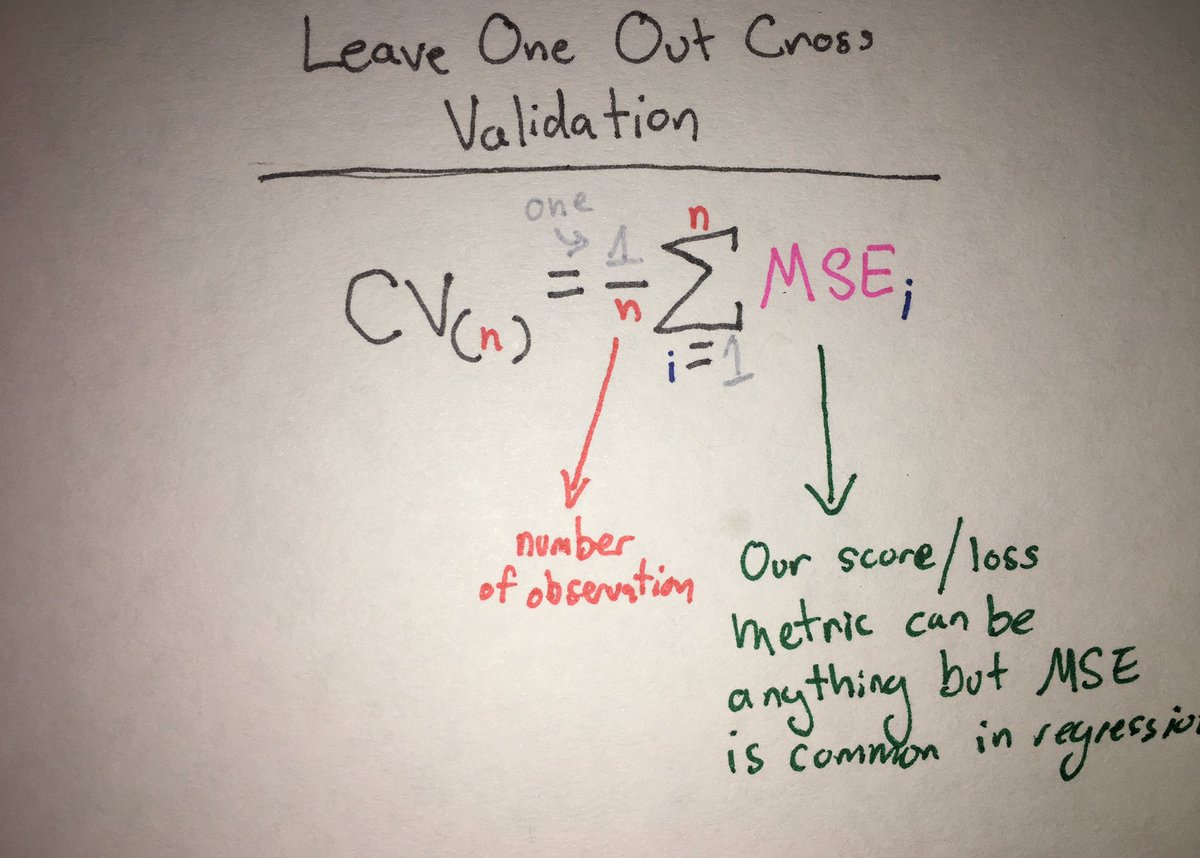 Leave One Out Cross
Validation
one
CV(n) = 1/n n∑i=1 MSEi
number
of observation
Our score/loss
metric can be
anything but MSE
is common in regression